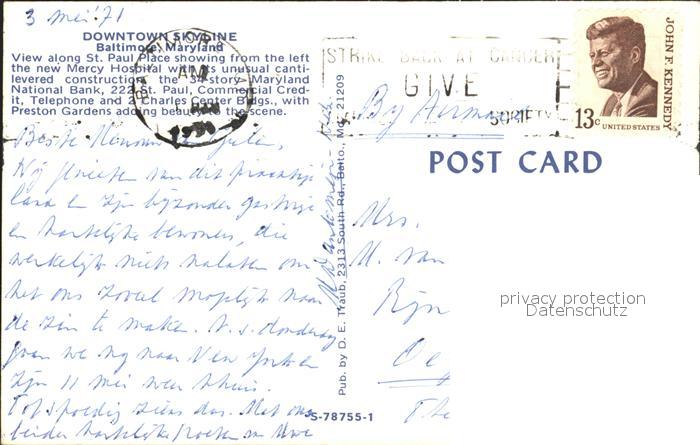 3 mei '71
DOWNTOWN SKYLINE
Baltimore, Maryland
View along St. Paul Place showing from the left
the new Mercy Hospital with its unusual canti-
levered construction, the 34-story Maryland
National Bank, 222 St. Paul, Commercial Cred-
it, Telephone and 2 Charles Center Bldgs., with
Preston Gardens adding beauty to the scene.
Beste
Wij genieten van dit prachtige
land en zijn bijzonder gastvrije
en hartelijke bewoners, die
werkelijk niets nalaten om
het ons zoveel mogelijk naar
de zin te maken. A.s. donderdag
gaan we nog naar New York en
zijn 11 mei weer thuis.
Tot spoedig ziens dus. Met onze
beider hartelijke groeten
Pub. by D. E. Traub, 2313 South Rd., Balto., Md. 21209
S-78755-1
AM
1971
STRIKE BACK AT CANCER
GIVE
SOCIETY
By Airmail
JOHN F. KENNEDY
13c UNITED STATES
POST CARD
Mrs.
van
Rijn
privacy protection
Datenschutz
Oe
The